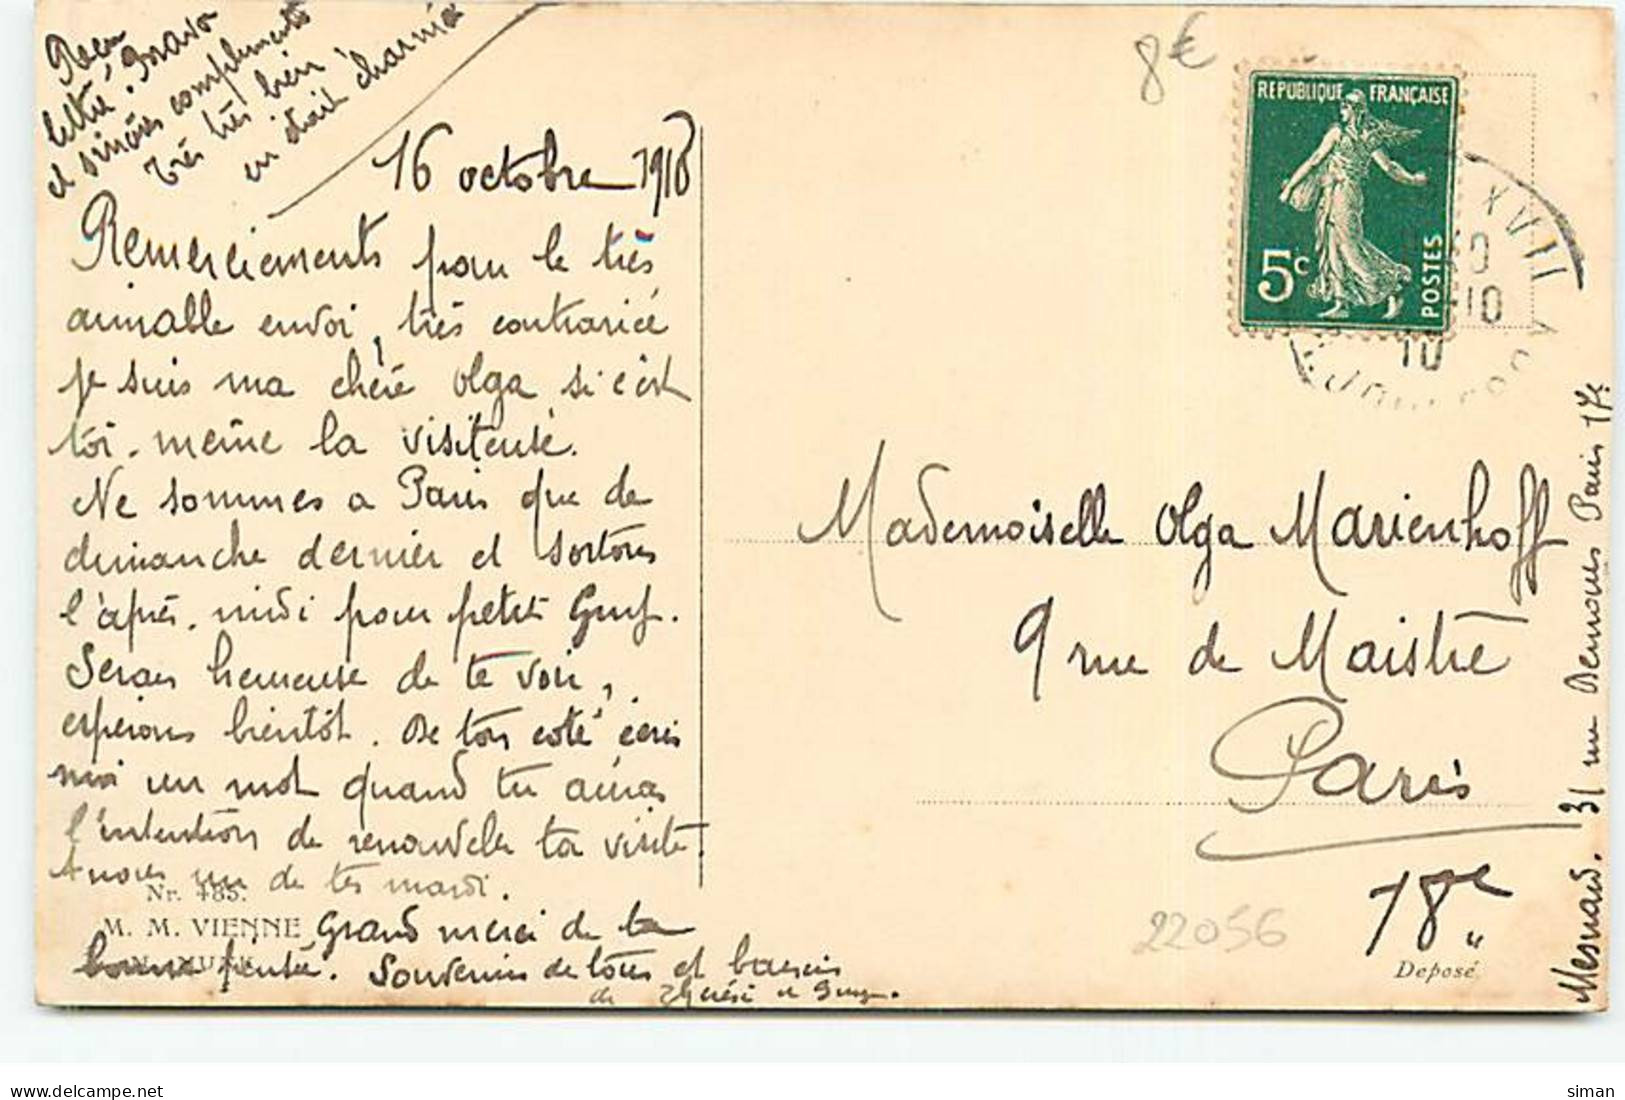 Reçu
lettre, Bravo
et sincères compliments
très très bien
on était charmé
16 octobre 1910
Remerciements pour le très
aimable envoi, très contrariée
je suis ma chère Olga si c'est
toi-même la visiteuse.
Ne sommes à Paris que de
dimanche dernier et sortons
l'après-midi pour petit Guy.
Serais heureuse de te voir,
espérons bientôt. De ton coté écris
moi un mot quand tu auras
l'intention de renouveler ta visite.
A nous un de tes mardi.
Grand merci de ta
bonne pensée. Souvenirs de tous et baisers
de Thérèse et Guy.
Nr. 485.
M. M. VIENNE
8€
REPUBLIQUE FRANÇAISE
5c
POSTES
XVII
10
10
Mademoiselle Olga Marienhoff
9 rue de Maistre
Paris
18e
22056
Deposé
Mesnard. 31 rue Demours Paris 17e
delcampe.net
siman